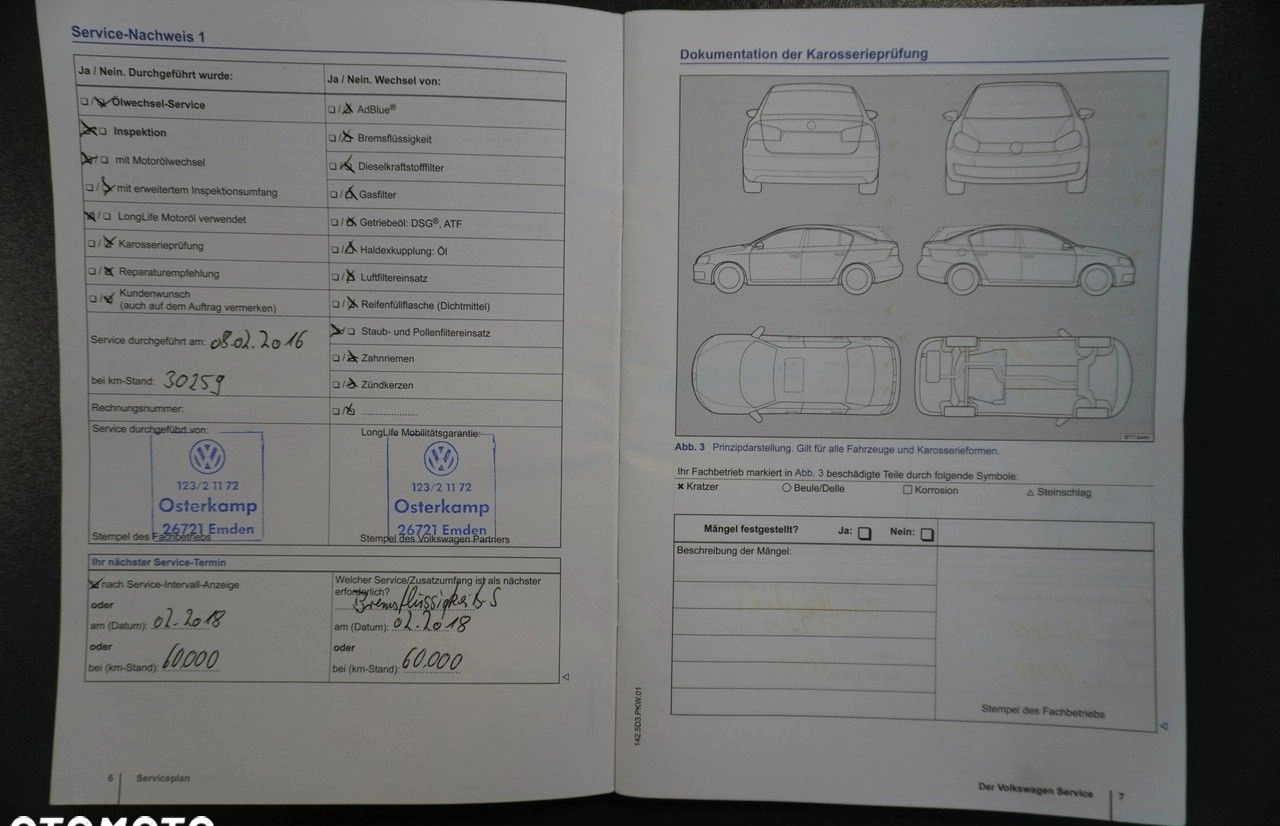 Service-Nachweis 1
Ja / Nein. Durchgeführt wurde:
❏ / ❏ Ölwechsel-Service
❏ / ❏ Inspektion
❏ / ❏ mit Motorölwechsel
❏ / ❏ mit erweitertem Inspektionsumfang
❏ / ❏ LongLife Motoröl verwendet
❏ / ❏ Karosserieprüfung
❏ / ❏ Reparaturempfehlung
❏ / ❏ Kundenwunsch
(auch auf dem Auftrag vermerken)
Service durchgeführt am: 08.02.2016
bei km-Stand: 30259
Rechnungsnummer:
Service durchgeführt von:
123/2 11 72
Osterkamp
26721 Emden
Stempel des Fachbetriebs
Ja / Nein. Wechsel von:
❏ / ❏ AdBlue®
❏ / ❏ Bremsflüssigkeit
❏ / ❏ Dieselkraftstofffilter
❏ / ❏ Gasfilter
❏ / ❏ Getriebeöl: DSG®, ATF
❏ / ❏ Haldexkupplung: Öl
❏ / ❏ Luftfiltereinsatz
❏ / ❏ Reifenfüllflasche (Dichtmittel)
❏ / ❏ Staub- und Pollenfiltereinsatz
❏ / ❏ Zahnriemen
❏ / ❏ Zündkerzen
❏ / ❏ .....................
LongLife Mobilitätsgarantie:
123/2 11 72
Osterkamp
26721 Emden
Stempel des Volkswagen Partners
Ihr nächster Service-Termin
nach Service-Intervall-Anzeige
oder
am (Datum): 02.2018
oder
bei (km-Stand): 60.000
Welcher Service/Zusatzumfang ist als nächster
erforderlich?
Bremsflüssigkeits
am (Datum): 02.2018
oder
bei (km-Stand): 60.000
6 Serviceplan
Dokumentation der Karosserieprüfung
Abb. 3 Prinzipdarstellung. Gilt für alle Fahrzeuge und Karosserieformen.
Ihr Fachbetrieb markiert in Abb. 3 beschädigte Teile durch folgende Symbole:
× Kratzer ○ Beule/Delle □ Korrosion △ Steinschlag
Mängel festgestellt? Ja: ❏ Nein: ❏
Beschreibung der Mängel:
Stempel des Fachbetriebs
142.5D3.PKW.01
Der Volkswagen Service 7
OTOMOTO